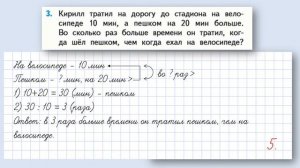 3. Кирилл тратил на дорогу до стадиона на вело-
сипеде 10 мин, а пешком на 20 мин больше.
Во сколько раз больше времени он тратил, ког-
да шёл пешком, чем когда ехал на велосипеде?
На велосипеде - 10 мин
Пешком - ? мин, на 20 мин >
во ? раз >
1) 10+20 = 30 (мин) - пешком
2) 30 : 10 = 3 (раза)
Ответ: в 3 раза больше времени он тратил пешком, чем на
велосипеде.
5.